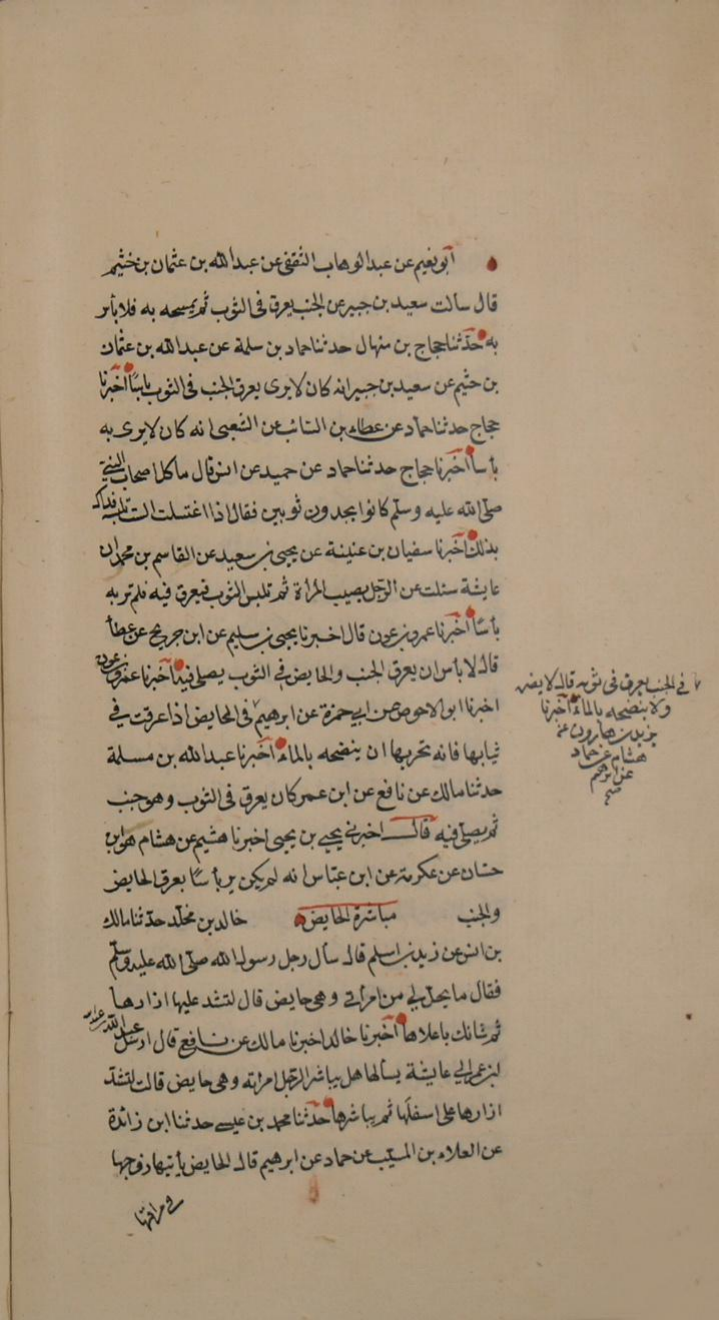 أبو نعيم عن عبد الوهاب الثقفي عن عبد الله بن عثمان بن خثيم
قال سالت سعيد بن جبير عن الجنب يعرق في الثوب ثم يمسحه به فلا باس
به حدثنا حجاج بن منهال حدثنا حماد بن سلمة عن عبد الله بن عثمان
بن خثيم عن سعيد بن جبير انه كان لا يرى بعرق الجنب في الثوب باسا أخبرنا
حجاج حدثنا حماد عن عطاء بن السائب عن الشعبي انه كان لا يرى به
بأسا أخبرنا حجاج حدثنا حماد عن حميد عن انس قال ما كل اصحاب النبي
صلى الله عليه وسلم كانوا يجدون ثوبين فقال اذا اغتسلت الست تلبسه فذاك
بذلك أخبرنا سفيان بن عنينة عن يحيى بن سعيد عن القاسم بن محمد ان
عايشة سئلت عن الرجل يصيب المرأة ثم تلبس الثوب فيعرق فيه فلم تر به
بأسا أخبرنا عمرو بن عون قال اخبرنا يحيى بن سليم عن ابن جريج عن عطا
قال لا بأس ان يعرق الجنب والحايض في الثوب يصلى فيه أخبرنا عمرو بن عون
اخبرنا ابو الاحوص عن ابي حمزة عن ابرهيم في الحايض اذا عرقت في
ثيابها فانه تحزيها ان ينضحه بالماء أخبرنا عبد الله بن مسلمة
حدثنا مالك عن نافع عن ابن عمر كان يعرق في الثوب وهو جنب
ثم يصلي فيه قال اخبرني يحيى بن يحيى اخبرنا هشيم عن هشام هو ابن
حسان عن عكرمة عن ابن عباس انه لم يكن يرى بأسا بعرق الحايض
والجنب مباشرة الحايض خالد بن مخلد حدثنا مالك
بن انس عن زيد بن اسلم قال سأل رجل رسول الله صلى الله عليه وسلم
فقال ما يحل لي من امرأتي وهي حايض قال لتشد عليها ازارها
ثم شانك باعلاها أخبرنا خالد اخبرنا مالك عن نافع قال ارسل عبد الله بن عبد الله
بن عمر الى عايشة يسالها هل يباشر الرجل امراته وهي حايض قالت لتشد
ازارها على اسفلها ثم يباشرها حدثنا محمد بن عيسى حدثنا ابن زائدة
عن العلاء بن المسيب عن حماد عن ابرهيم قال الحايض يأتيها زوجها
في مراقها
في الجنب يعرق في ثوبه قال لا يضره
ولا ينضحه بالماء أخبرنا
يزيد بن هارون عن
هشام عن حماد
عن ابرهيم
صح